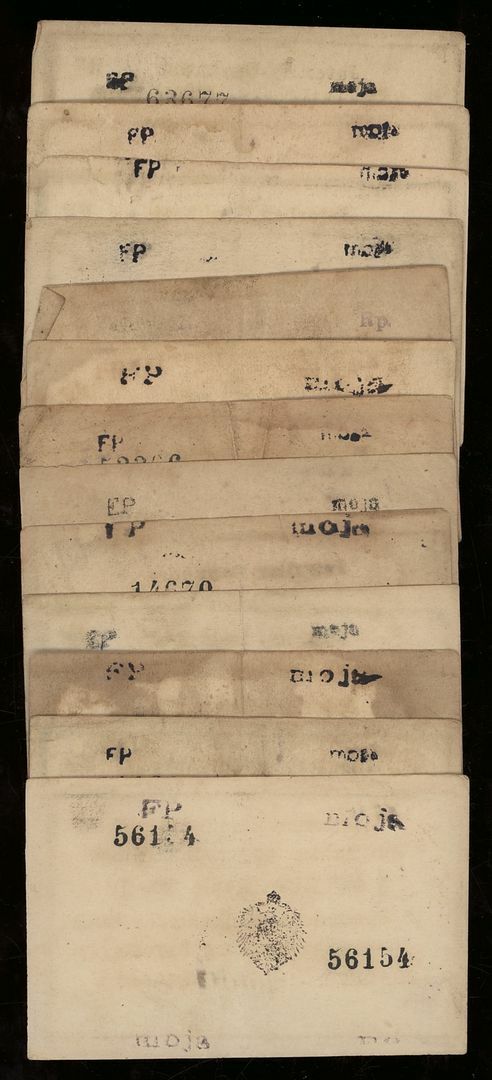 FP moja
63677
FP moja
FP moja
FP moja
Rp.
FP moja
FP moja
FP moja
FP moja
14670
FP moja
FP moja
FP moja
FP moja
56154
56154
moja